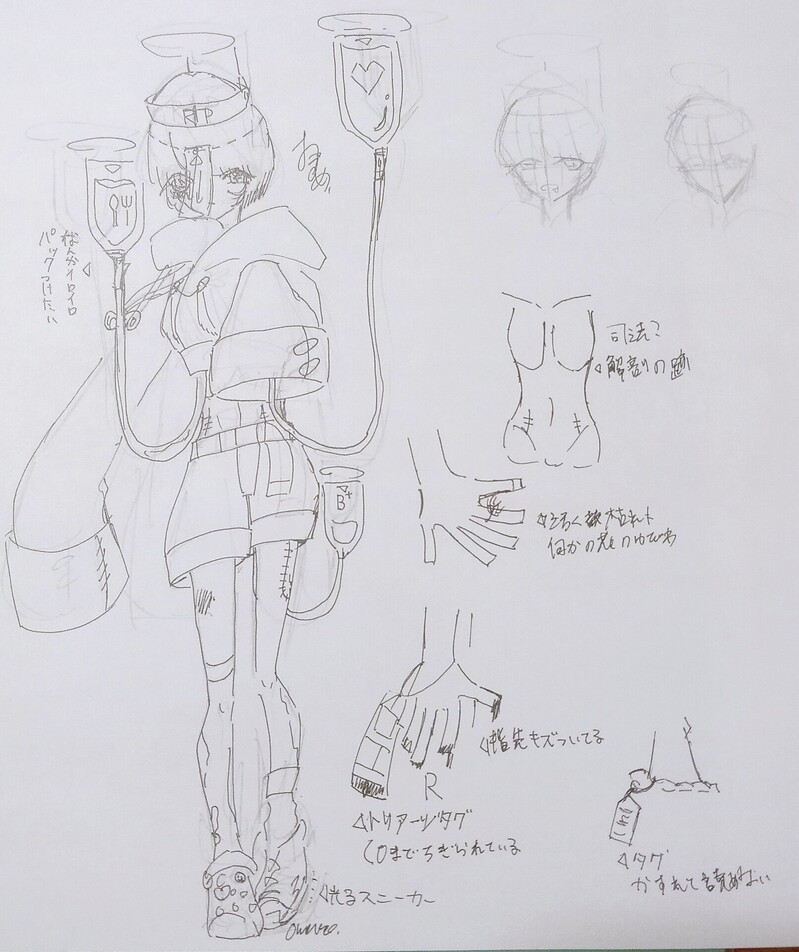 RIP
なんかイロイロ
パックつけたい
司法?
解剖の跡
B+
何かの花のゆびわ
指先キズついてる
R
トリアージタグ
(0までちぎられている
タグ
かすれて読めない
光るスニーカー